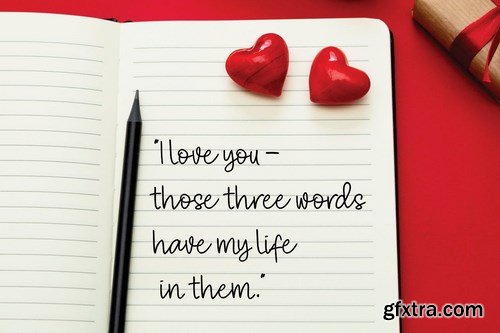 "I love you –
those three words
have my life
in them."
gfxtra.com